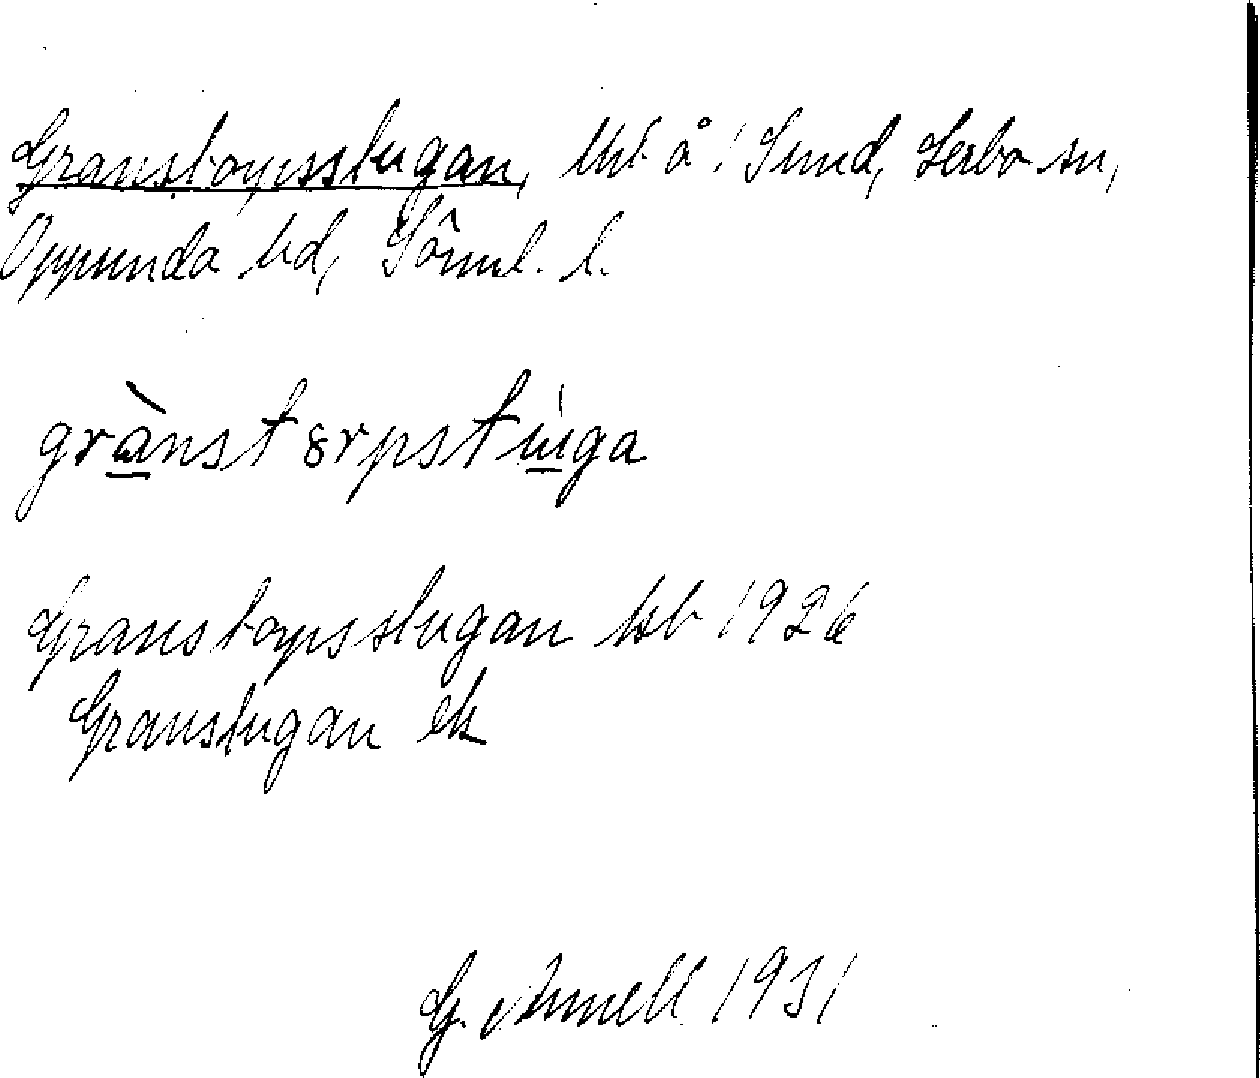 Granstorpsstugan, lht å 1 Sund, Lerbo sn,
Oppunda hd, Sörml. l.
grànst8rpstùga
Granstorpsstugan kb 1926
Granstugan ek
G. Arnell 1931